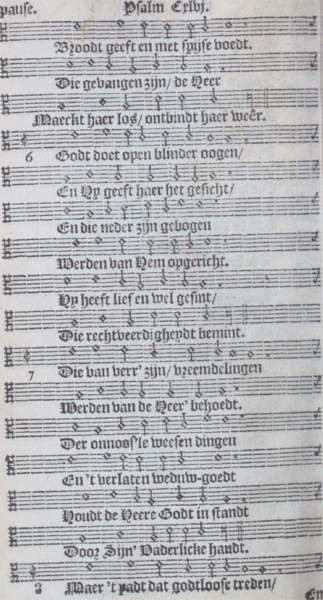 pause. Psalm Cxlvj.
Broodt geeft en met spijse voedt.
Die gevangen zijn/ de Heer
Maeckt haer los/ ontbindt haer weêr.
6 Godt doet open blinder oogen/
En Hy geeft haer het gesicht/
En die neder zijn gebogen
Werden van Hem opgericht.
Hy heeft lief en wel gesint/
Die rechtveerdigheydt bemint.
7 Die van verr' zijn/ vreemdelingen
Werden van de Heer' behoedt.
Der onnoos'le weesen dingen
En 't verlaten weduw-goedt
Houdt de Heere Godt in standt
Door Sijn' Vaderlicke handt.
Maer 't padt dat godtloose treden/
En